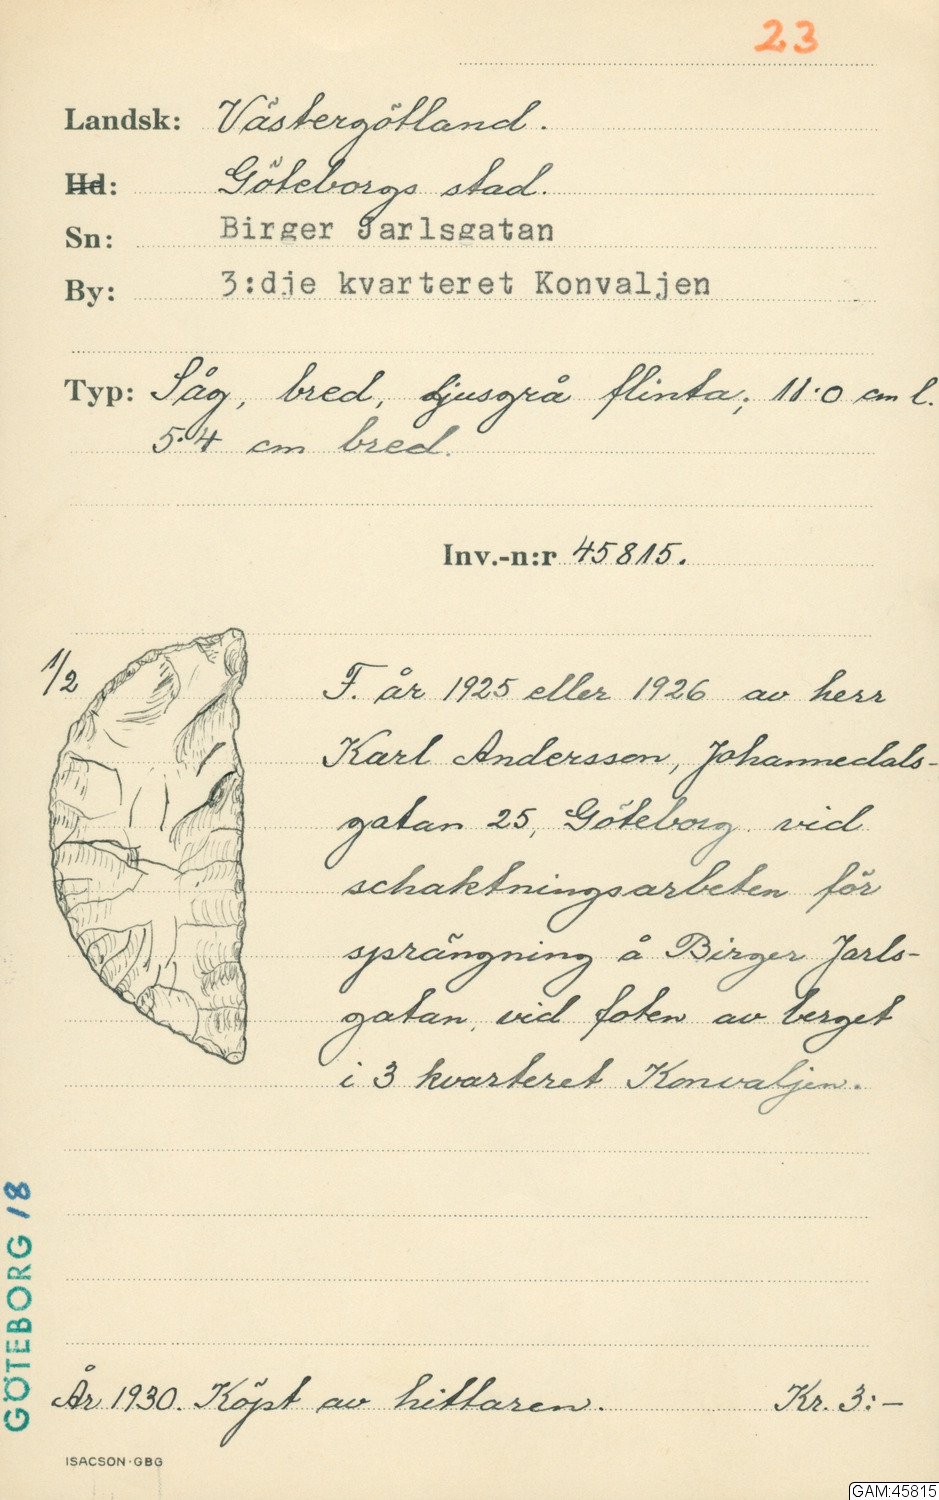 23
Landsk: Västergötland.
Hd: Göteborgs stad.
Sn: Birger Jarlsgatan
By: 3:dje kvarteret Konvaljen
Typ: Såg, bred, ljusgrå flinta; 11·0 cm l.
5·4 cm bred.
Inv.-n:r 45815.
1/2
F. år 1925 eller 1926 av herr
Karl Andersson, Johannedals-
gatan 25, Göteborg vid
schaktningsarbeten för
sprängning å Birger Jarls-
gatan, vid foten av berget
i 3 kvarteret Konvaljen.
GÖTEBORG 18
År 1930. Köpt av hittaren. Kr. 3:-
ISACSON·GBG
GAM:45815